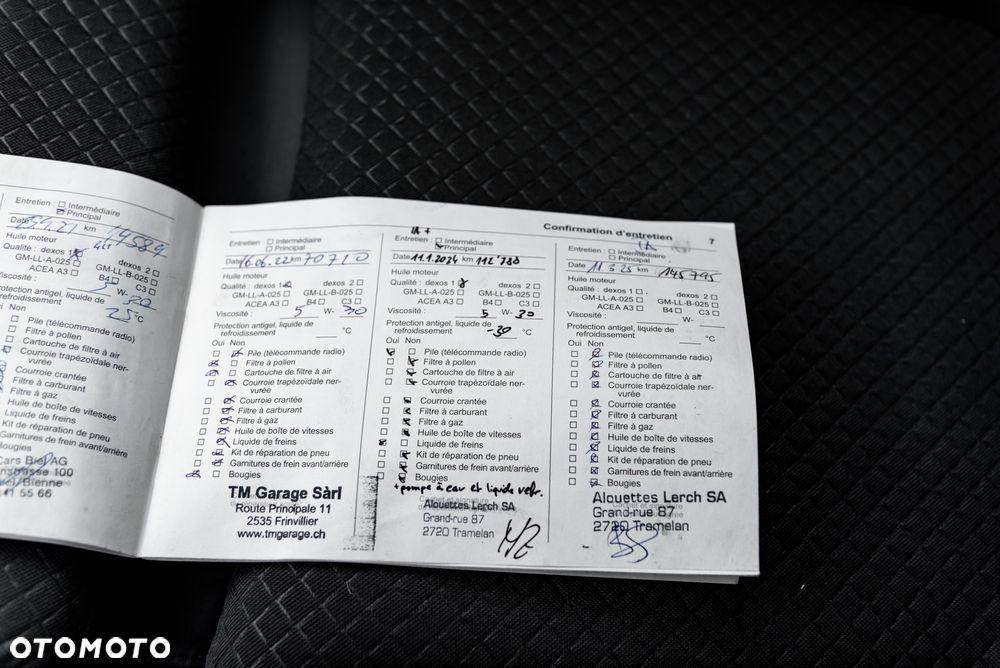 Entretien : Intermédiaire
Principal
Date km 19589
Huile moteur
Qualité : dexos 1 dexos 2
GM-LL-A-025 GM-LL-B-025
ACEA A3 B4 C3
Viscosité : 5 W- 30
Protection antigel, liquide de
refroidissement 25 °C
Oui Non
Pile (télécommande radio)
Filtre à pollen
Cartouche de filtre à air
Courroie trapézoïdale ner-
vurée
Courroie crantée
Filtre à carburant
Filtre à gaz
Huile de boîte de vitesses
Liquide de freins
Kit de réparation de pneu
Garnitures de frein avant/arrière
Bougies
41 55 66
Entretien : Intermédiaire
Principal
Date 16.06.22 km 70710
Huile moteur
Qualité : dexos 1 dexos 2
GM-LL-A-025 GM-LL-B-025
ACEA A3 B4 C3
Viscosité : 5 W- 30
Protection antigel, liquide de
refroidissement °C
Oui Non
Pile (télécommande radio)
Filtre à pollen
Cartouche de filtre à air
Courroie trapézoïdale ner-
vurée
Courroie crantée
Filtre à carburant
Filtre à gaz
Huile de boîte de vitesses
Liquide de freins
Kit de réparation de pneu
Garnitures de frein avant/arrière
Bougies
TM Garage Sàrl
Route Principale 11
2535 Frinvillier
www.tmgarage.ch
Confirmation d'entretien 7
Entretien : Intermédiaire
Principal
Date 11.1.2024 km 112'780
Huile moteur
Qualité : dexos 1 dexos 2
GM-LL-A-025 GM-LL-B-025
ACEA A3 B4 C3
Viscosité : 5 W- 30
Protection antigel, liquide de
refroidissement -30 °C
Oui Non
Pile (télécommande radio)
Filtre à pollen
Cartouche de filtre à air
Courroie trapézoïdale ner-
vurée
Courroie crantée
Filtre à carburant
Filtre à gaz
Huile de boîte de vitesses
Liquide de freins
Kit de réparation de pneu
Garnitures de frein avant/arrière
Bougies
+ pompe à eau et liquide refr.
Cachet et signature
Alouettes Lerch SA
Grand-rue 87
2720 Tramelan
Entretien : Intermédiaire
Principal
Date 11 3 25 km 145795
Huile moteur
Qualité : dexos 1 dexos 2
GM-LL-A-025 GM-LL-B-025
ACEA A3 B4 C3
Viscosité : W-
Protection antigel, liquide de
refroidissement °C
Oui Non
Pile (télécommande radio)
Filtre à pollen
Cartouche de filtre à air
Courroie trapézoïdale ner-
vurée
Courroie crantée
Filtre à carburant
Filtre à gaz
Huile de boîte de vitesses
Liquide de freins
Kit de réparation de pneu
Garnitures de frein avant/arrière
Bougies
Cachet et signature
Alouettes Lerch SA
Grand-rue 87
2720 Tramelan
OTOMOTO